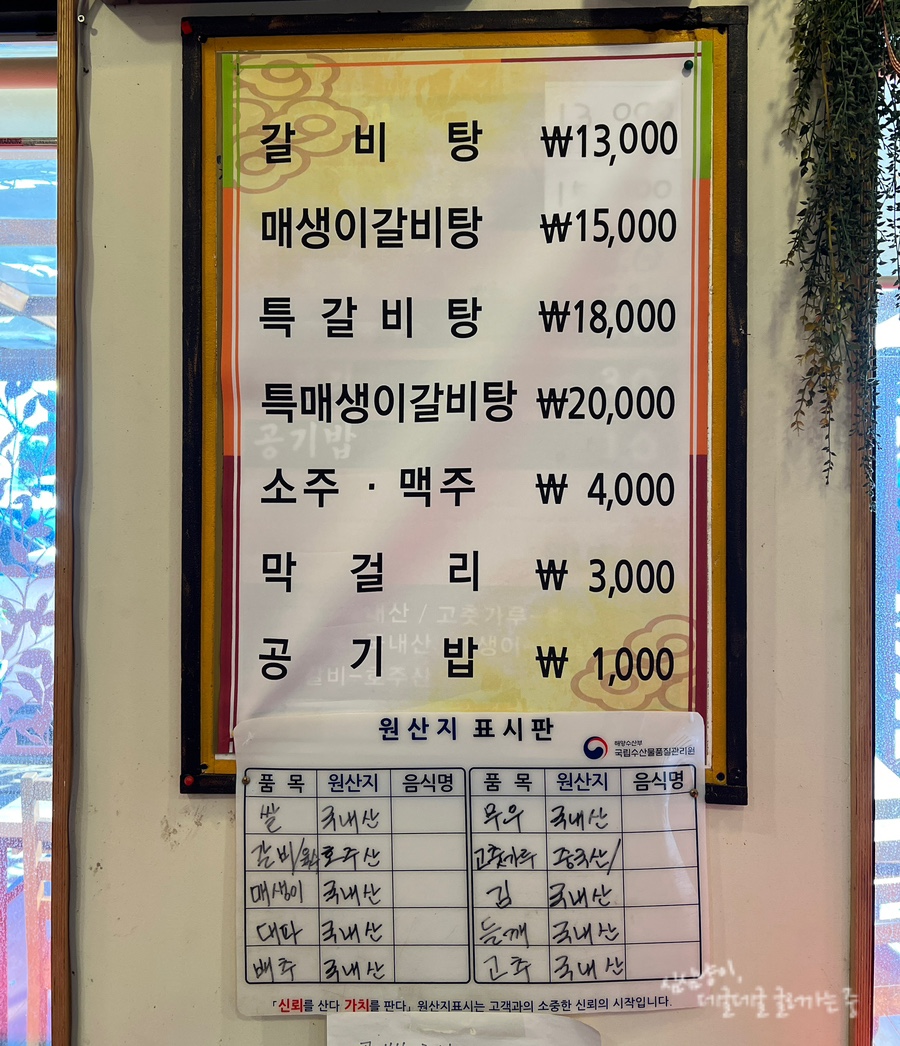 갈 비 탕 ₩13,000
매생이갈비탕 ₩15,000
특 갈 비 탕 ₩18,000
특매생이갈비탕 ₩20,000
소주 · 맥주 ₩ 4,000
막 걸 리 ₩ 3,000
공 기 밥 ₩ 1,000
공기밥
내산 / 고춧가루
원산지 표시판
해양수산부
국립수산물품질관리원
품 목 원산지 음식명 품 목 원산지 음식명
쌀 국내산 무우 국내산
갈비/ 호주산 고춧가루 중국산/
매생이 국내산 김 국내산
대파 국내산 들깨 국내산
배추 국내산 고추 국내산
「신뢰를 산다 가치를 판다」 원산지표시는 고객과의 소중한 신뢰의 시작입니다.
데굴데굴 굴러가는중